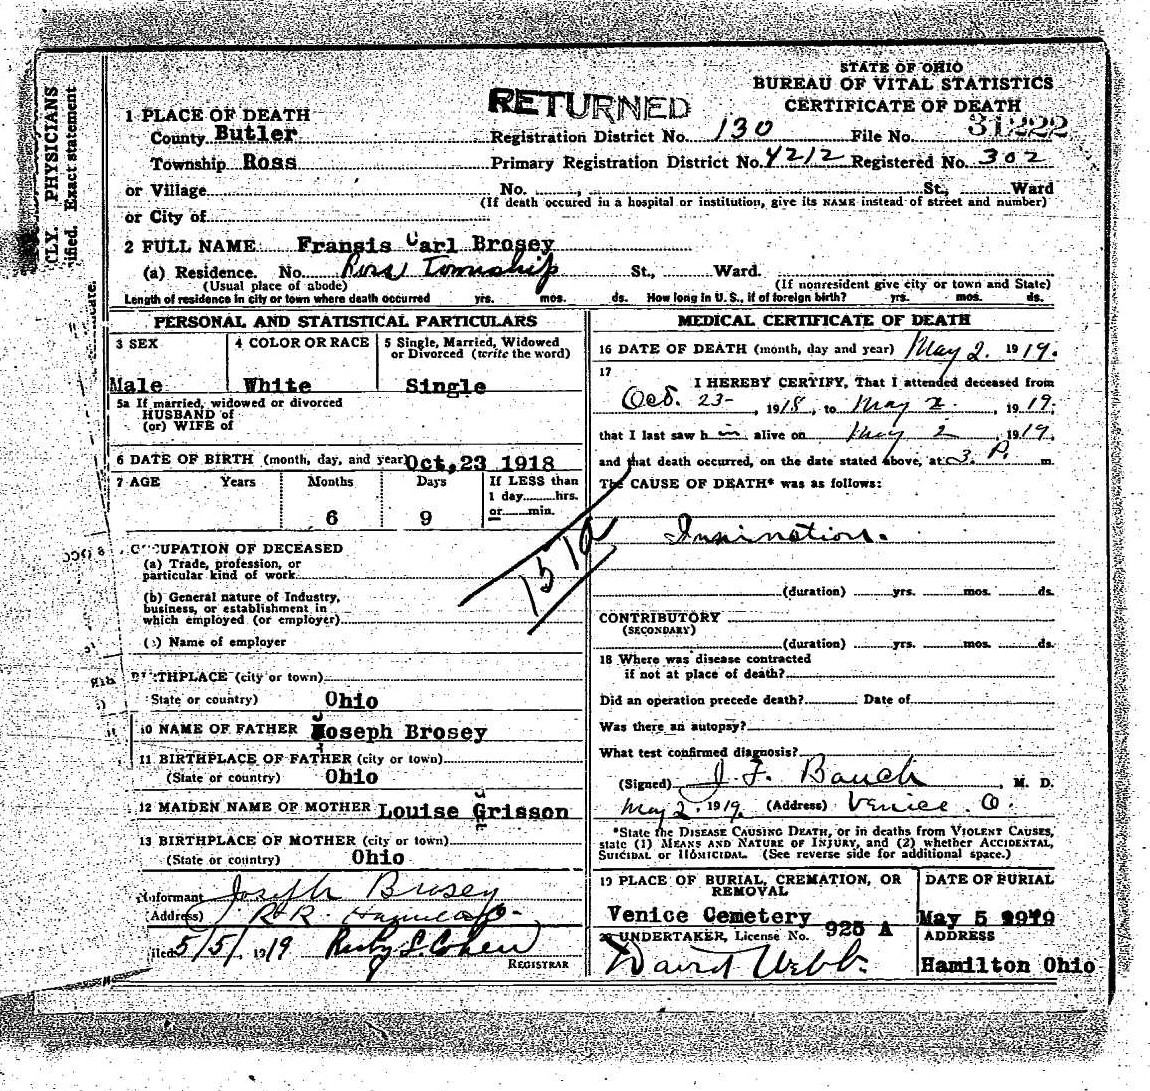 CLY. PHYSICIANS
ified. Exact statement
RETURNED
STATE OF OHIO
BUREAU OF VITAL STATISTICS
CERTIFICATE OF DEATH
1 PLACE OF DEATH
County Butler Registration District No. 130 File No. 31222
Township Ross Primary Registration District No. 4212 Registered No. 302
or Village No. , St., Ward
(If death occured in a hospital or institution, give its NAME instead of street and number)
or City of
2 FULL NAME Fransis Carl Brosey
(a) Residence. No. Ross Township St., Ward.
(Usual place of abode) (If nonresident give city or town and State)
Length of residence in city or town where death occurred yrs. mos. ds. How long in U. S., if of foreign birth? yrs. mos. ds.
PERSONAL AND STATISTICAL PARTICULARS
3 SEX 4 COLOR OR RACE 5 Single, Married, Widowed
or Divorced (write the word)
Male White Single
5a If married, widowed or divorced
HUSBAND of
(or) WIFE of
6 DATE OF BIRTH (month, day, and year) Oct, 23 1918
7 AGE Years Months Days If LESS than
1 day hrs.
or min.
6 9
OCCUPATION OF DECEASED
(a) Trade, profession, or
particular kind of work
(b) General nature of Industry,
business, or establishment in
which employed (or employer)
Name of employer
BIRTHPLACE (city or town)
State or country) Ohio
10 NAME OF FATHER Joseph Brosey
11 BIRTHPLACE OF FATHER (city or town)
(State or country) Ohio
12 MAIDEN NAME OF MOTHER Louise Grisson
13 BIRTHPLACE OF MOTHER (city or town)
(State or country) Ohio
Informant Joseph Brosey
Address) R R Hamilton O-
iled 5/5/ 1919
REGISTRAR
MEDICAL CERTIFICATE OF DEATH
16 DATE OF DEATH (month, day and year) May 2. 1919.
17
I HEREBY CERTIFY, That I attended deceased from
Oct. 23- , 1918, to May 2. , 1919;
that I last saw h im alive on May 2 , 1919,
and that death occurred, on the date stated above, at 3. P. m.
The CAUSE OF DEATH* was as follows:
Inanition.
151a
(duration) yrs. mos. ds.
CONTRIBUTORY
(SECONDARY)
(duration) yrs. mos. ds.
18 Where was disease contracted
if not at place of death?
Did an operation precede death? Date of
Was there an autopsy?
What test confirmed diagnosis?
(Signed) J. F. Bauch , M. D.
May 2, 1919. (Address) Venice. O.
*State the DISEASE CAUSING DEATH, or in deaths from VIOLENT CAUSES,
state (1) MEANS AND NATURE OF INJURY, and (2) whether ACCIDENTAL,
SUICIDAL or HOMICIDAL. (See reverse side for additional space.)
19 PLACE OF BURIAL, CREMATION, OR
REMOVAL
DATE OF BURIAL
Venice Cemetery May 5 1919
20 UNDERTAKER, License No. 925 A ADDRESS
David Webb. Hamilton Ohio